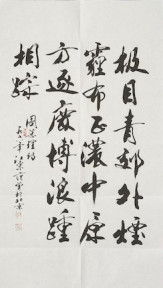 极目青郊外烟
霾布正浓中原
方逐鹿博浪踵
相踪
周总理诗